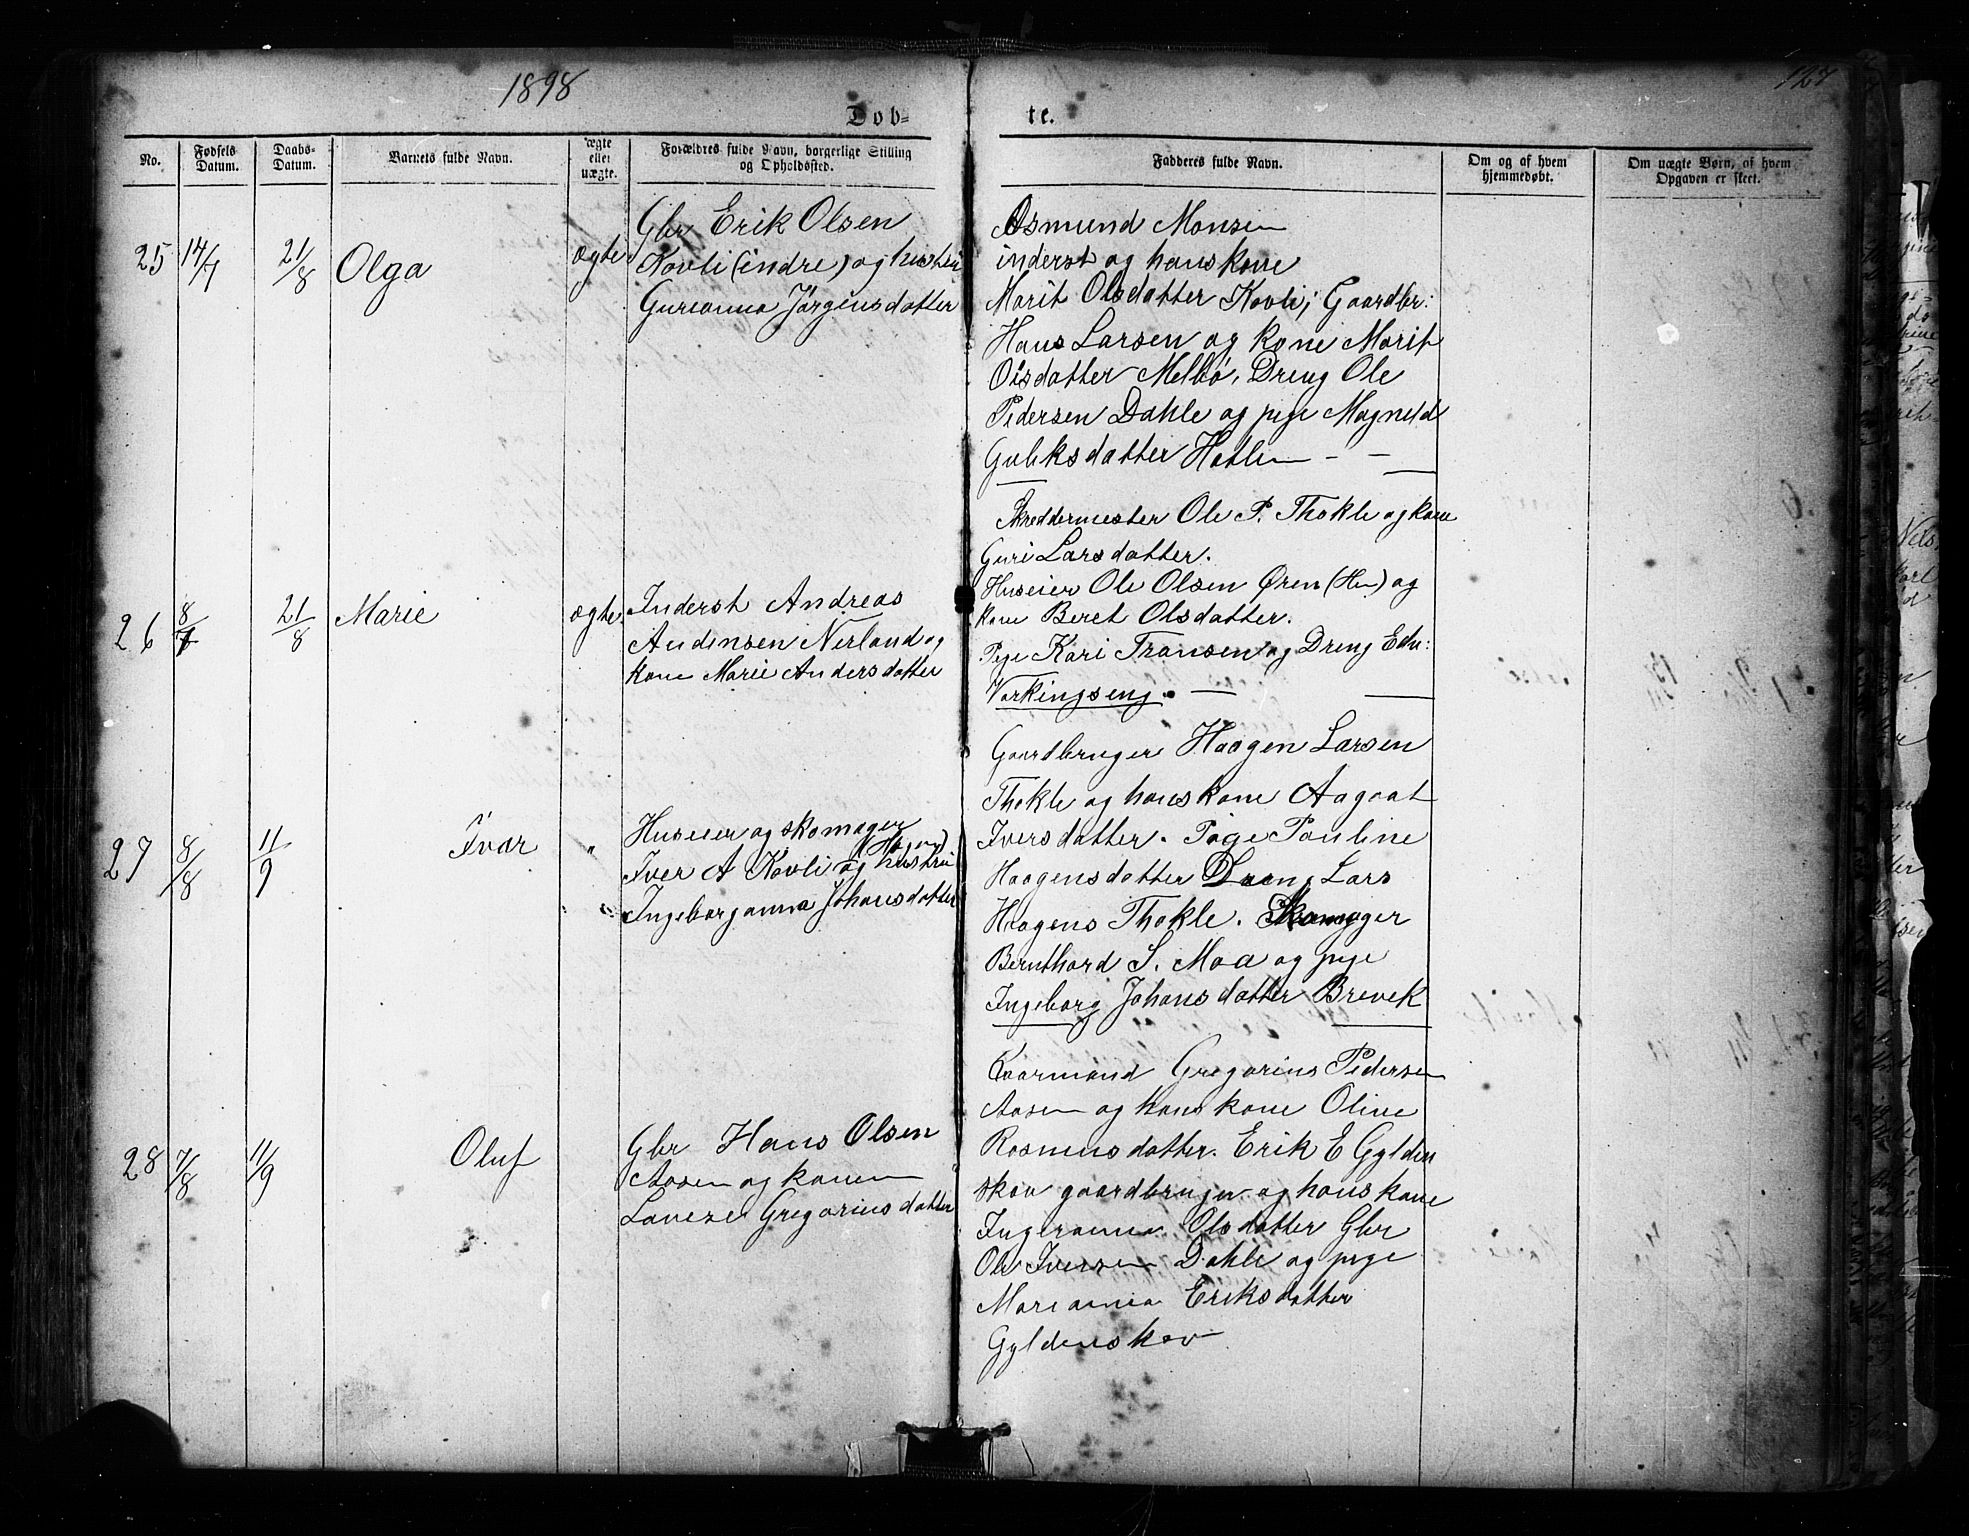 1898
127
Døb-
te.
No.
Fødsels Datum.
Daabs- Datum.
Barnets fulde Navn.
ægte eller uægte.
Forældres fulde Navn, borgerlige Stilling og Opholdssted.
Fadderes fulde Navn.
Om og af hvem hjemmedøbt.
Om uægte Børn, af hvem Opgaven er skeet.
25 14/7 21/8 Olga ægte
Gbr Erik Olsen
Kovli (indre) og hustru
Gurianna Jørgensdatter
Osmund Monsen
inderst og hans kone
Marit Olsdatter Kovli; Gaardbr:
Hans Larsen og kone Marit
Olsdatter Melbø, Dreng Ole
Pedersen Dahle og pige Magnild
Guliksdatter Hatlen - -
26 8/7 21/8 Marie ægte
Inderst Andreas
Andersen Nerland og
kone Marie Andersdatter
Skreddermester Ole P. Thokle og kone
Guri Larsdatter.
Huseier Ole Olsen Øren (Hen) og
kone Beret Olsdatter.
Pige Kari Fransen og Dreng Edv:
Varkingseng. —
27 8/8 11/9 Ivar "
Huseier og skomager
Iver A Kovli og hustru
Ingeborganna Johansdatter
Gaardbruger Haagen Larsen
Thokle og hans kone Aagaat
Iversdatter. Pige Pauline
Haagensdatter Dreng Lars
Hagens Thokle. Skomager
Bernthard S. Moa og pige
Ingeborg Johansdatter Brevek
28 7/8 11/9 Oluf
Gbr Hans Olsen
Aasen og konen
Lovise Gregoriusdatter
Kaarmand Gregorius Pedersen
Aasen og hans kone Oline
Rasmusdatter. Erik E Gylden
skov gaardbruger og hans kone
Ingeranna Olsdatter Gbr
Ole Iversen Dahle og pige
Marianna Eriksdatter
Gyldenskov